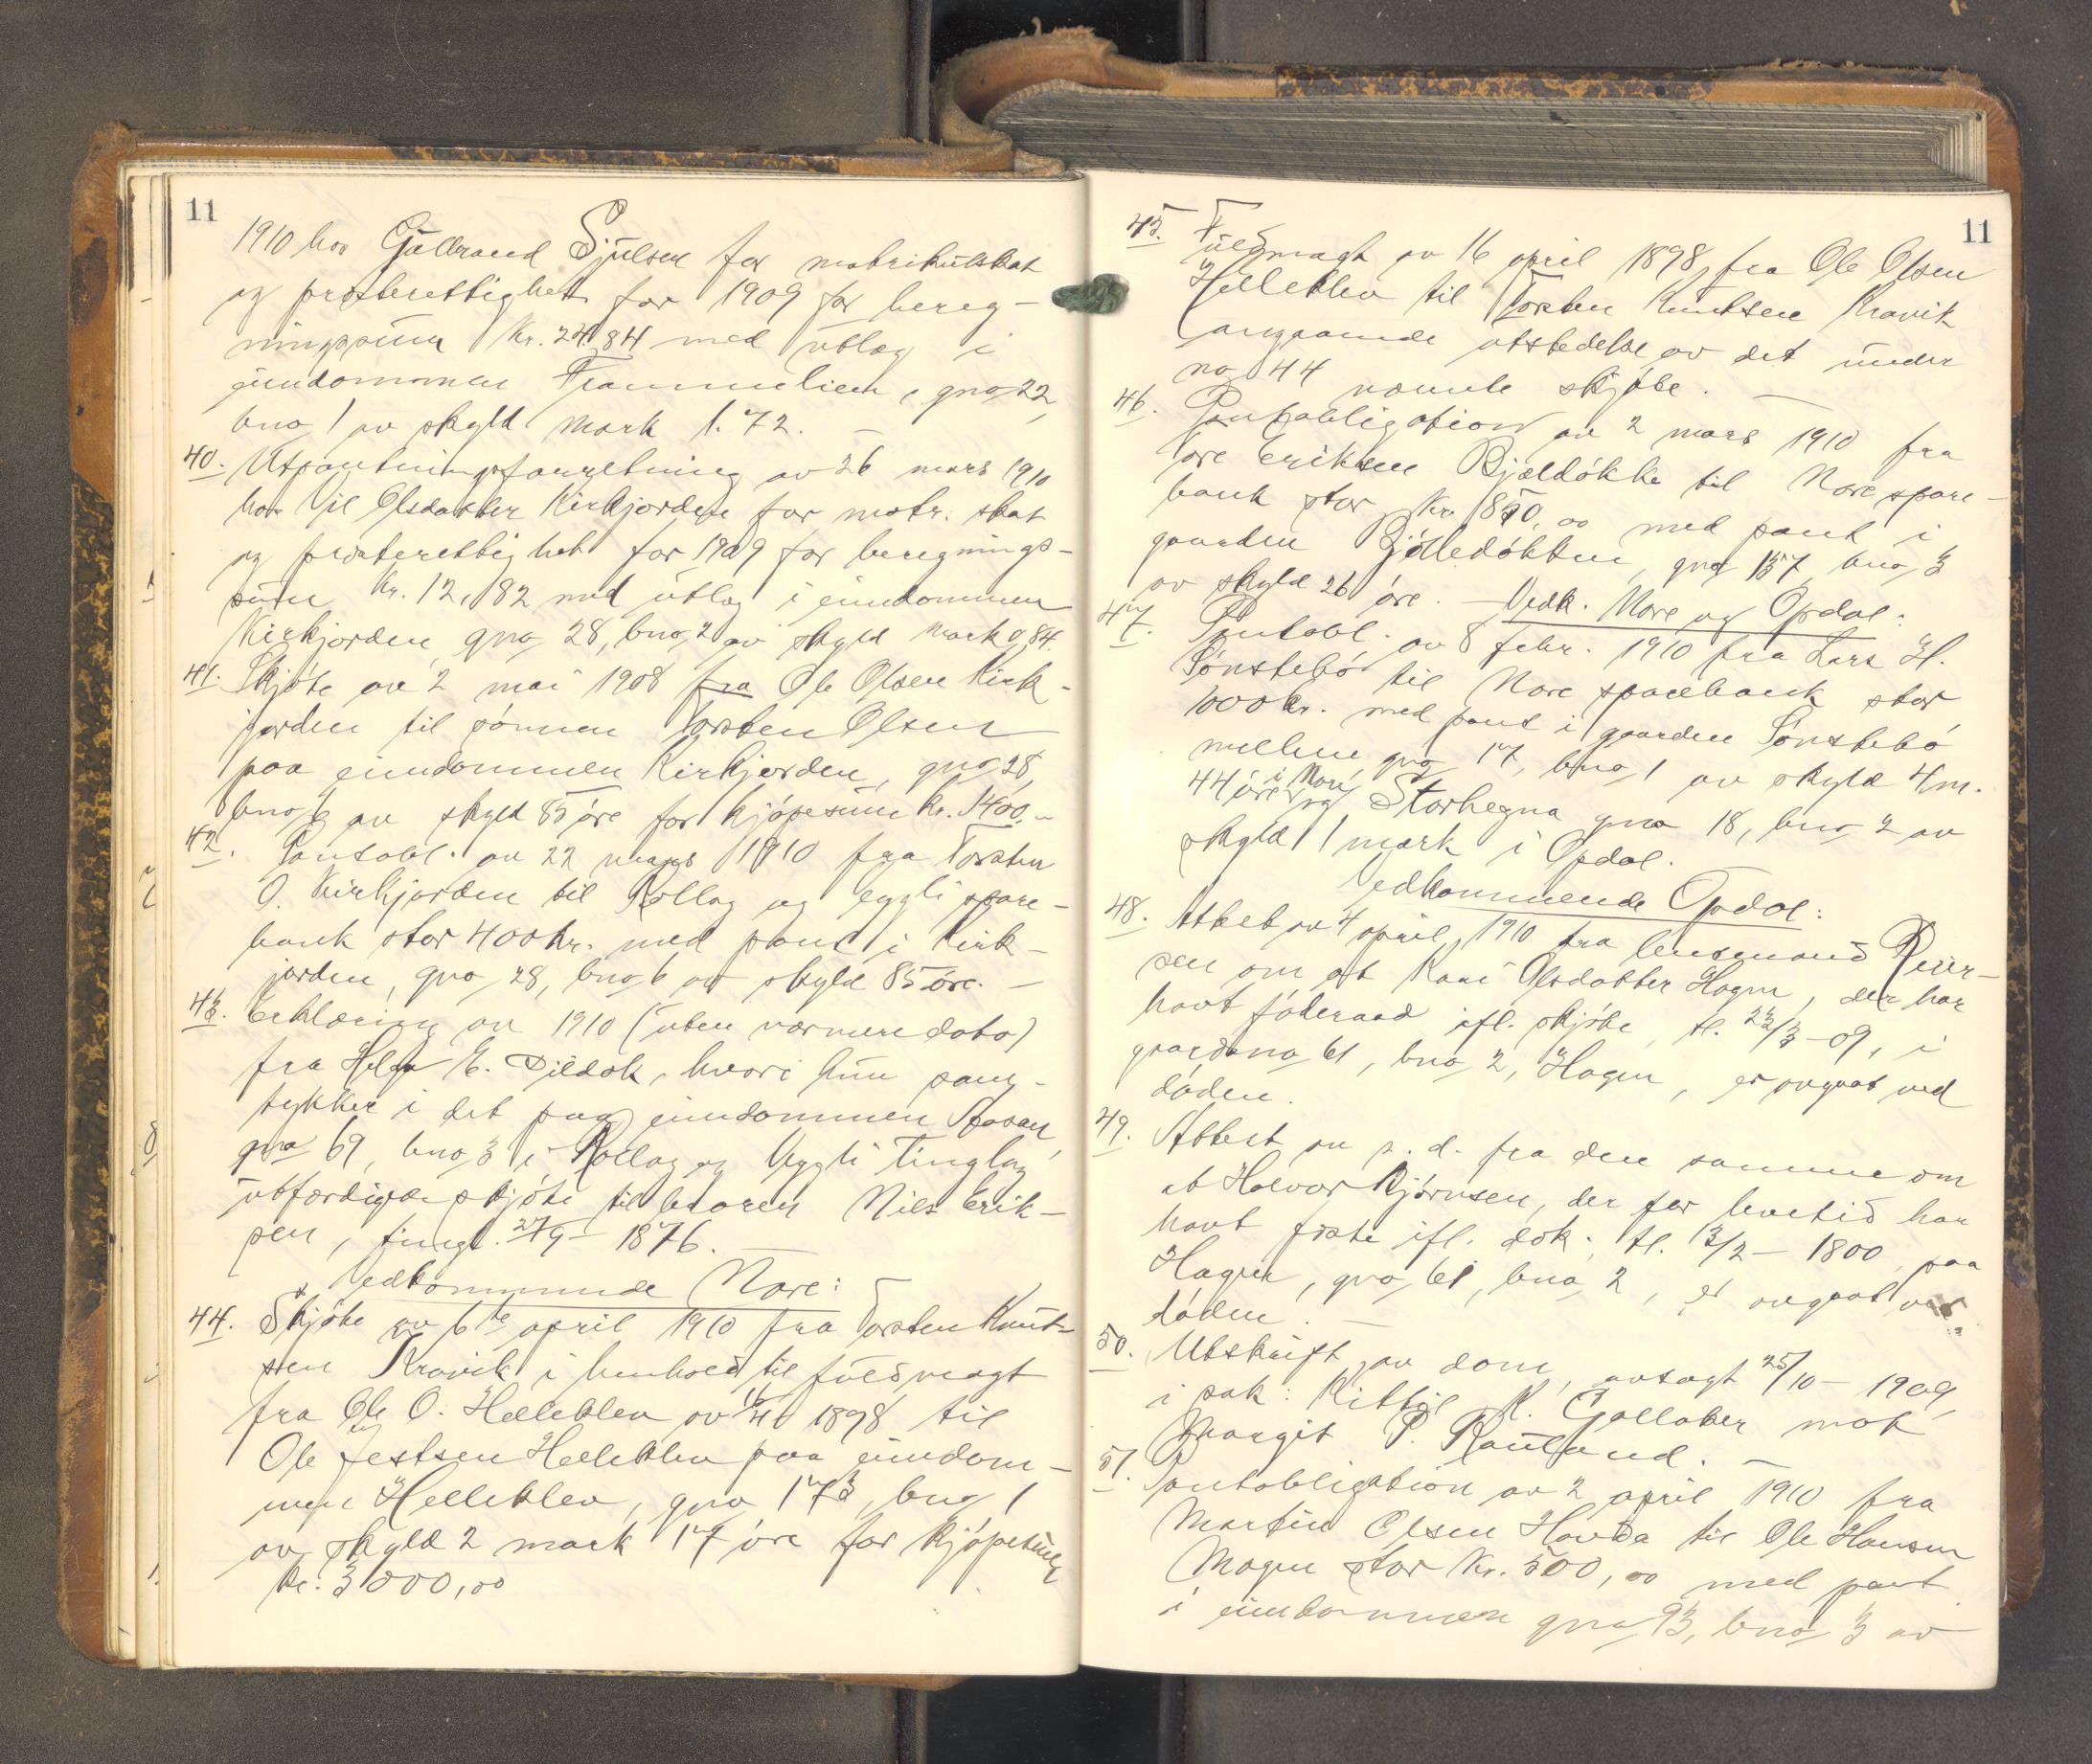 11
1910 hos Gulbrand Sjulsen for matrikulskat
og presterettighet for 1909 for bereg-
ningssum kr. 24,84 med utlæg i
eiendommen Trommelien, gno 22,
bno 1 av skyld mark 1.72. –
40. Utpantningsforretning av 26 mars 1910
hos Gil Olsdatter Kirkjorden for matr. skat
og presterettighet for 1909 for beregnings-
sum kr. 12,82 med utlæg i eiendommen
Kirkjorden gno 28, bno 2 av skyld mark 0,84.
41. Skjøte av 2 mai 1908 fra Ole Olsen Kirk-
jorden til sønnen Torsten Olsen
paa eiendommen Kirkjorden, gno 28,
bno 6 av skyld 85 øre for kjøpesum kr. 1400.-
42. Pantobl. av 22 mars 1910 fra Torsten
O. Kirkjorden til Rollag og Eggli spare-
bank stor 400 kr. med pant i Kirk-
jorden, gno 28, bno 6 av skyld 85 øre. –
43. Erklæring av 1910 (uten nærmere dato)
fra Helga E. Dildok, hvori hun sam-
tykker i det paa eiendommen
gno 69, bno 3 i Rollag og Veggli tinglag
utfærdigede skjøte til broren Nils Erik-
sen, tingl. 27/9 – 1876. –
Vedkommende Nore:
44. Skjøte av 6te april 1910 fra Torsten Knut-
sen Kravik i henhold til fuldmagt
fra Ole O. Helleklev av 16/4 1898 til
Ole Festsen Helleklev paa eiendom-
men Helleklev, gno 173, bno 1
av skyld 2 mark 17 øre for kjøpesum
kr. 3000,00
11
45. Fuldmagt av 16 april 1898 fra Ole Olsen
Helleklev til Torsten Knutsen Kravik
angaaende utstedelse av det under
no 44 nævnte skjøte. –
46. Pantobligation av 2 mars 1910 fra
Tore Eriksen Bjældøkke til Nore spare-
bank stor kr. 850,00 med pant i
gaarden Bjølledøkken, gno 157, bno 3
av skyld 26 øre. – Vedk. Nore og Opdal:
47. Pantobl. av 8 febr. 1910 fra Lars H.
Sønstebø til Nore sparebank stor
1000 kr. med pant i gaarden Sønstebø
mellem gno 17, bno 1 av skyld 4 m.
44 øre i Nore og Storhegna gno 18, bno 2 av
skyld 1 mark i Opdal.
Vedkommende Opdal:
48. Attest av 4 april 1910 fra lensmand Reier-
sen om at Kari Olsdatter Hagen, der har
havt føderaad ifl. skjøte, tl. 22/3 – 09, i
gaardsno 61, bno 2, Hagen, er avgaat ved
døden.
49. Attest av s. d. fra den samme om
at Halvor Bjørnsen, der for levetid har
havt fæste ifl. dok. tl. 13/2 – 1800 paa
Hagen, gno 61, bno 2, er avgaat ved
døden. –
50. Utskrift av dom, avsagt 25/10 – 1909,
i sak: Kittil K. Gallaker mot
Margit P. Rauland. –
51. Pantobligation av 2 april 1910 fra
Martin Olsen Hovda til Ole Hansen
Mogen stor kr. 500,00 med pant
i eiendommen gno 93, bno 3 av